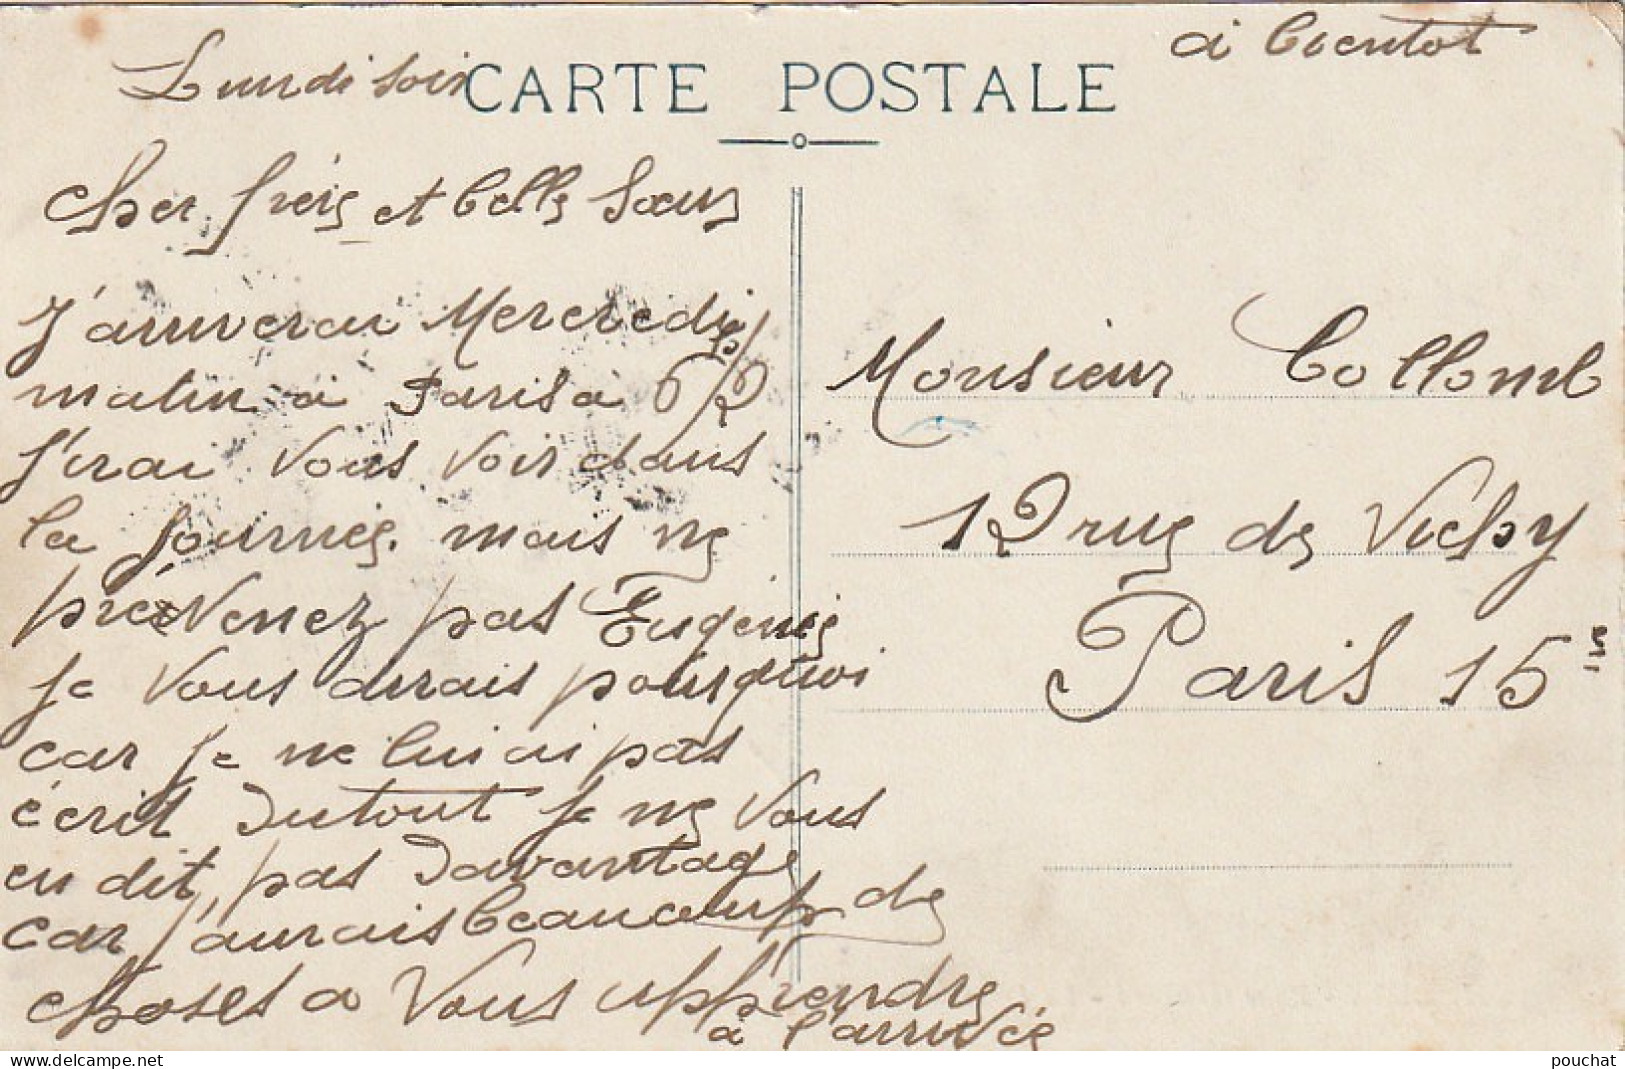 Lundi soir
CARTE POSTALE
à bientot
cher frère et belle Sœur
J'arriverai Mercredi
matin à Paris à 6 1/2
J'irai Vous Voir dans
la journée. mais ne
prévenez pas Eugénie
je Vous dirais pourquoi
car je ne lui ai pas
écrit Dutout je ne Vous
en dit pas Davantage
car j'aurais beaucoup de
choses a Vous apprendre
à l'arrivée
Monsieur Collomb
12 rue de Vichy
Paris 15e
delcampe.net
pouchat